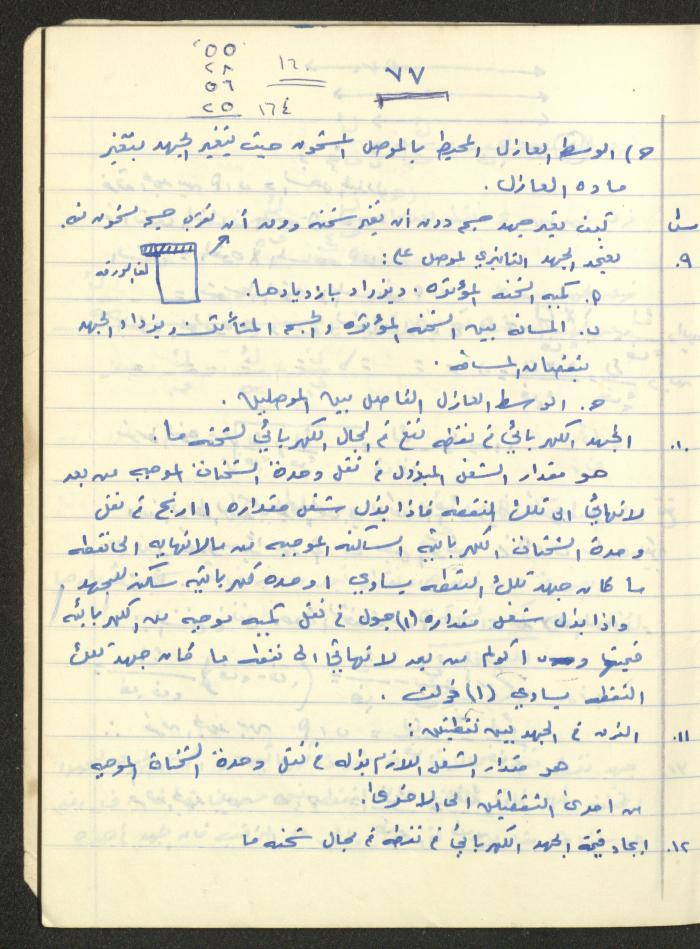 ٥٥
٢٨
٥٦
٢٥
١٦
١٦٤
٧٧
ح) الوسط العازل المحيط بالموصل المشحون حيث يتغير الجهد بتغير
مادة العازل .
س١ كيف يتغير جهد جسم دون أن تتغير شحنته ودون أن نقرب جسم مشحون منه
٩. يعتمد الجهد التأثيري لموصل على :
لفافة ورقة
P. كمية الشحنة المؤثره . ويزداد بازديادها .
ب. المسافة بين الشحنه المؤثره والجسم المتأثر . ويزداد الجهد
بنقصان المسافة .
ح. الوسط العازل الفاصل بين الموصلين .
١٠. الجهد الكهربائي في نقطه تقع في المجال الكهربائي لشحنة ما .
هو مقدار الشغل المبذول في نقل وحدة الشحنات الموجبه من بعد
لانهائي الى تلك النقطه فاذا بذل شغل مقداره ١ ارج في نقل
وحدة الشحنات الكهربائيه الساكنه الموجبه من مالانهايه الى نقطه
ما كان جهد تلك النقطه يساوي ١ وحده كهربائيه ساكنه للجهد .
واذا بذل شغل مقداره (١) جول في نقل كميه موجبه من الكهربائيه
قيمتها ١ كولم من بعد لانهائي الى نقطه ما كان جهد تلك
النقطه يساوي (١) فولت .
١١. الفرق في الجهد بين نقطتين :
هو مقدار الشغل اللازم بذله في نقل وحدة الشحنات الموجبه
من احدى النقطتين الى الاخرى .
١٢. ايجاد قيمة الجهد الكهربائي في نقطه في مجال شحنه ما